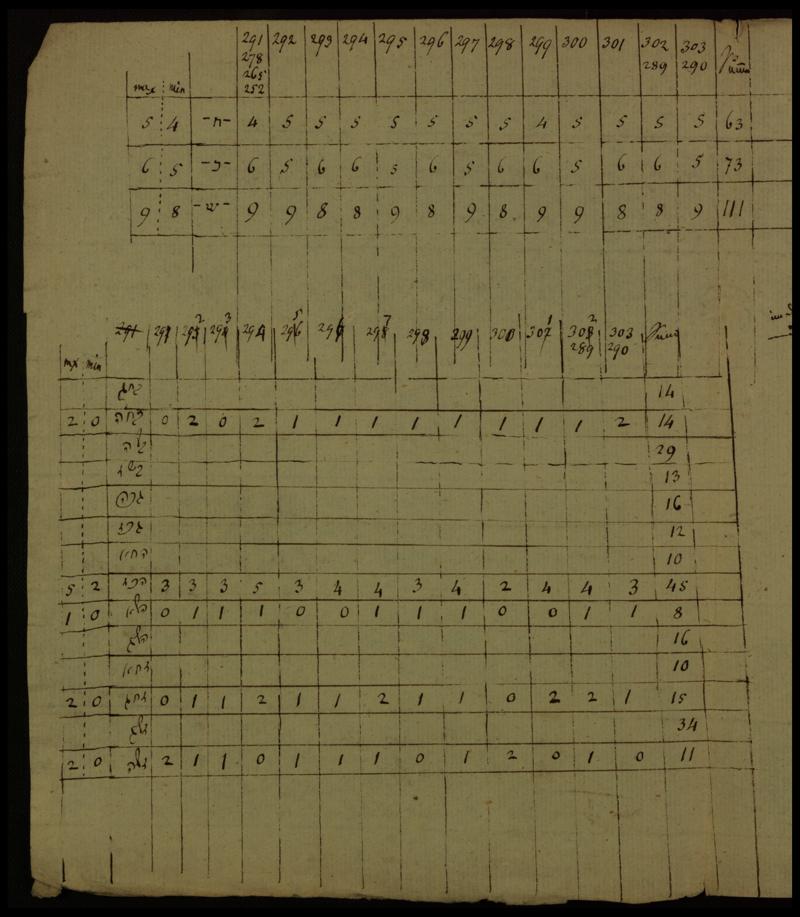 291 292 293 294 295 296 297 298 299 300 301 302 303
278 289 290
265
252
max min
5 4 -ח- 4 5 5 5 5 5 5 5 4 5 5 5 5 63
6 5 -כ- 6 5 6 6 5 6 5 6 6 5 6 6 5 73
9 8 -ש- 9 9 8 8 9 8 9 8 9 9 8 8 9 111
291 291 292 293 294 295 296 297 298 299 300 301 302 303
289 290
mx min
14
2 0 בחה 0 2 0 2 1 1 1 1 1 1 1 1 2 14
29
13
16
12
10
5 2 הכז 3 3 3 5 3 4 4 3 4 2 4 4 3 45
1 0 0 1 1 1 0 0 1 1 1 0 0 1 1 8
16
10
2 0 זחג 0 1 1 2 1 1 2 1 1 0 2 2 1 15
34
2 0 2 1 1 0 1 1 1 0 1 2 0 1 0 11